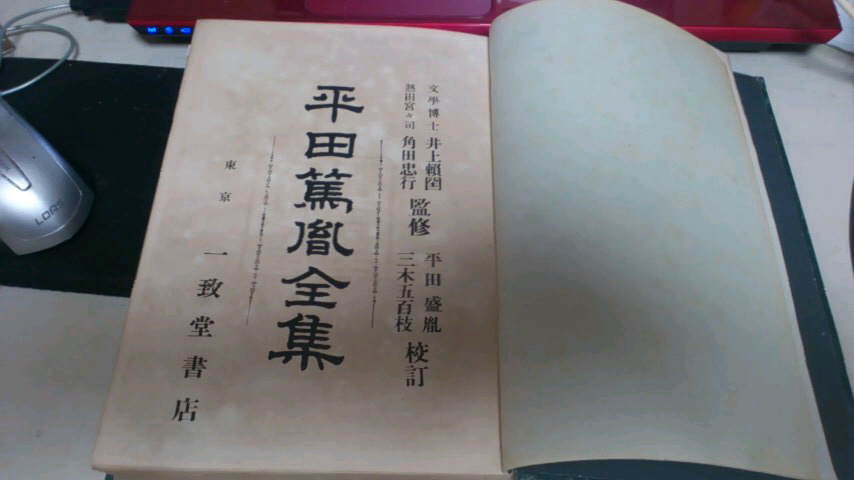 文學博士 井上頼囶
熱田宮々司 角田忠行
監修
平田盛胤
三木五百枝
校訂
平田篤胤全集
東京 一致堂書店